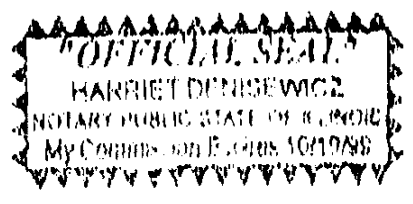 "OFFICIAL SEAL"
HARRIET DENISEWICZ
NOTARY PUBLIC STATE OF ILLINOIS
My Commission Expires 10/19/98